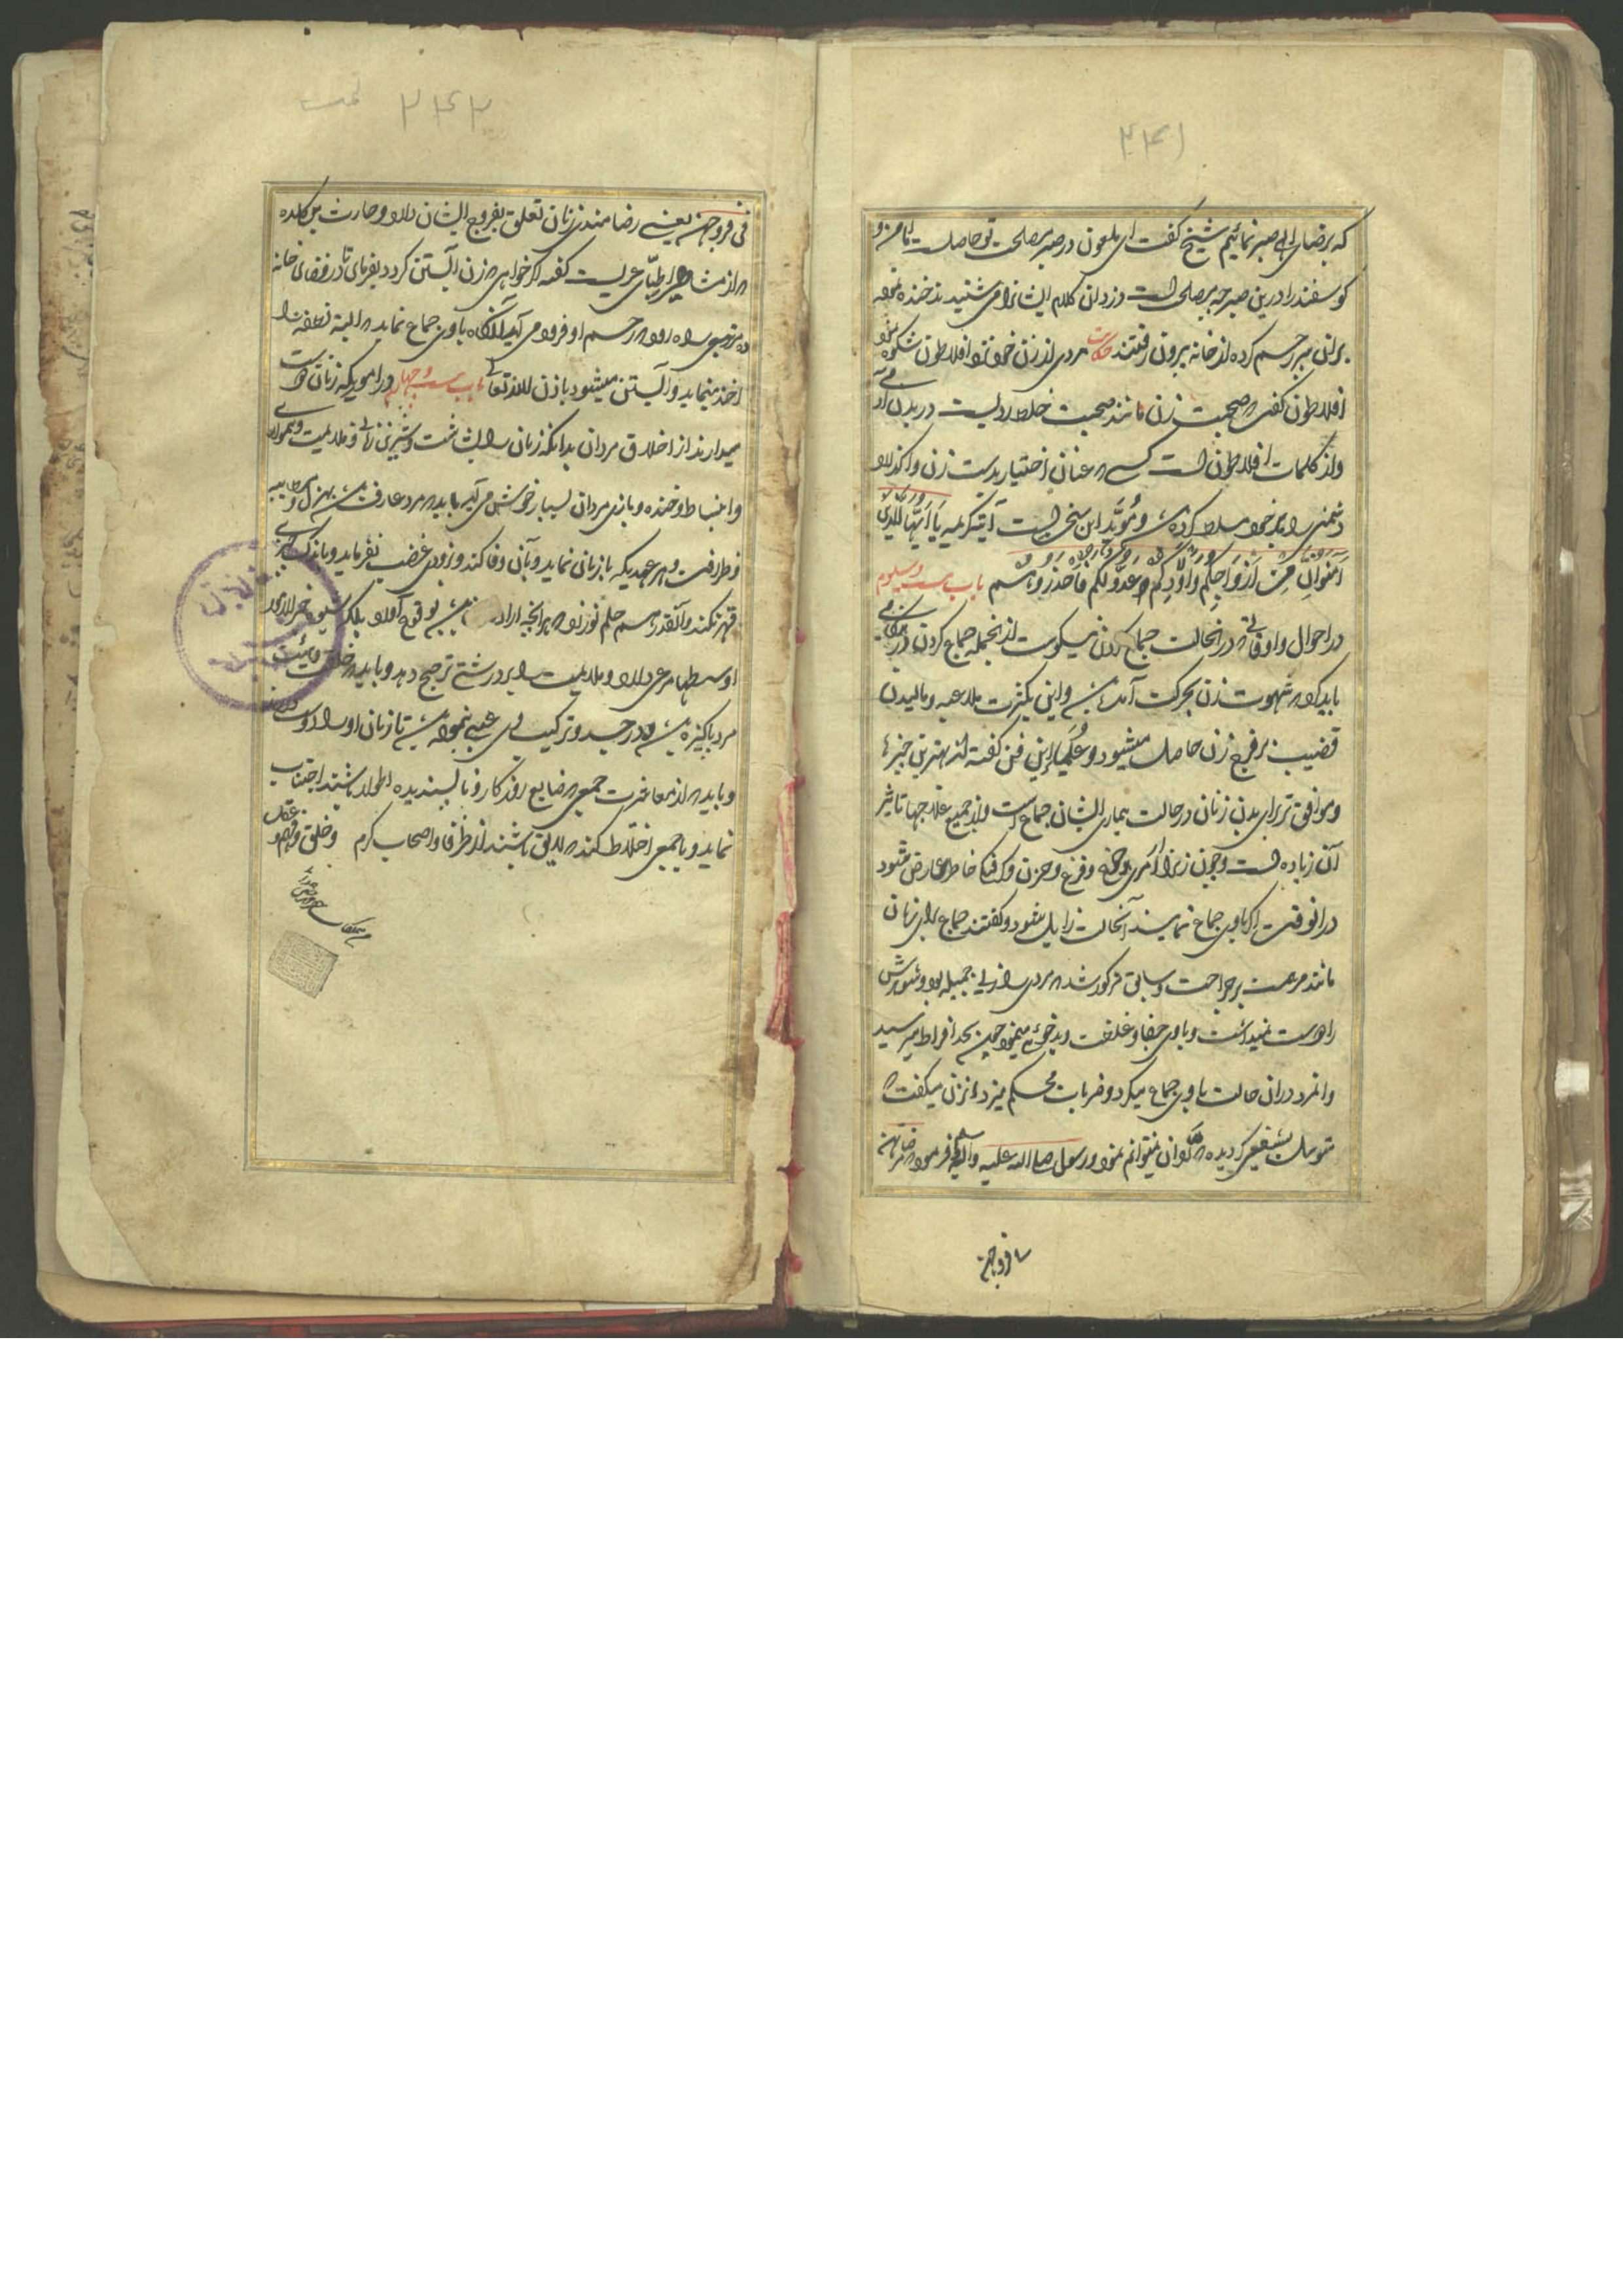 ۲۴۱
که برضای الهی صبر نمائیم شیخ گفت ای ملعون در صبر مصلحت تو حاصلست اما من و
کوسفند را درین صبر چه مصلحت است دزدان کلام ایشانرا می شنیدند خنده
بران پیر رحم کرده از خانه بیرون رفتند حکایت مردی از زن خود نزد افلاطون شکوه
افلاطون گفت که صحبت زن مانند صحبت خلط ردیست در بدن
و از کلمات افلاطون است کسی که عنان اختیار بدست زن وا گذارد
دشمنی را بر خود مسلط کرده باشد و مؤید این سخن است آیه کریمه یَا اَیُّهَا الَّذِینَ
آمَنُوا اِنَّ مِنْ اَزْوَاجِکُمْ وَاَوْلَادِکُمْ عَدُوًّا لَکُمْ فَاحْذَرُوهُمْ باب بیست و سیوم
در احوال و اوقاتی که در انحالت جماع کردن نیکوست از انجمله جماع کردن در
باید که شهوت زن بحرکت آمده باشد و این بکثرت ملاعبه و مالیدن
قضیب بر فرج زن حاصل میشود و حکمای این فن گفته اند بهترین چیزها
و موافق تر برای بدن زنان در حالت بیماری ایشان جماع است و از جمیع علاجها تاثیر
آن زیاده است و چون زنرا و فزع و حزن و خاطر عارض شود
در انوقت اگر باوی جماع نمایند آنحالت زایل شود و گفتند جماع برای زنان
مانند مرهمست بر جراحت و سابق مذکور شد که مردی را زنی جمیله بود و شوهرش
را دوست نمیداشت و باوی جفا و غلظت و بدخوئی مینمود چون بحد افراط میرسید
و انمرد دران حالت باوی جماع میکرد و ضربات محکم میزد انزن میگفت که
متوسل بشفیعی کردیده که رد ان نمیتوانم نمود و رسول صلی الله علیه وآله فرموده
فی فروجهن
۲۴۲
فی فروجهن یعنی رضامندی زنان تعلق بفروج ایشان دارد و حارث بن کلده
که از مشاهیر اطبّای عربست گفته اگر خواهی که زن آبستن کردد بفرمای تا در فضای خانه
راه رود که رحم او فرود می آید آنگاه باوی جماع نماید که البته نطفه را
اخذ مینماید و آبستن میشود باذن الله تعالی باب بیست و چهارم در اموریکه زنان دوست
میدارند از اخلاق مردان بدانکه زنان را بشاشت و شیرین زبانی و ملایمت و همواری
و انبساط و خنده و بازی مردان بسیار خوش می آید باید که مرد عارف باشد بهزل و مطایبه
و ظرافت و هر عهدیکه با زنان نماید بآن وفا کند و بزودی غضب نفرماید و باندک چیزی
قهر نکند و آنقدر هم حلم نورزد که هر آنچه اراده بوقوع آورد بلکه شیوه خیر الامور
اوسطها مرعی دارد و ملایمت را بر درشتی ترجیح دهد و باید که خلقت و هیئت
مرد پاکیزه باشد و در جسد و ترکیب وی عیبی نبوده باشد تا زنان او را دوست
و باید که از معاشرت جمعی که ضایع روزگار و ناپسندیده اطوار باشند اجتناب
نماید و با جمعی اختلاط کند که لایق باشند از ظرفا و اصحاب کرم و خلق و فهم و عقل